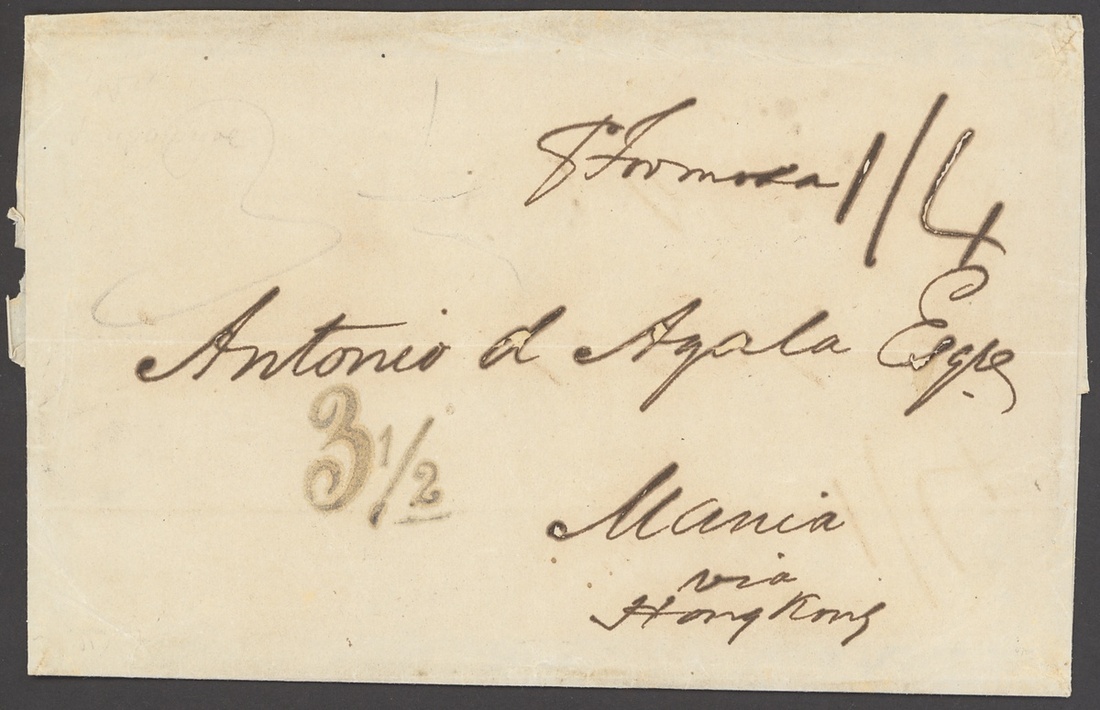 p Formosa 1/4
Antonio d Ayala Esqre
3 1/2
Mania
via
Hong Kong